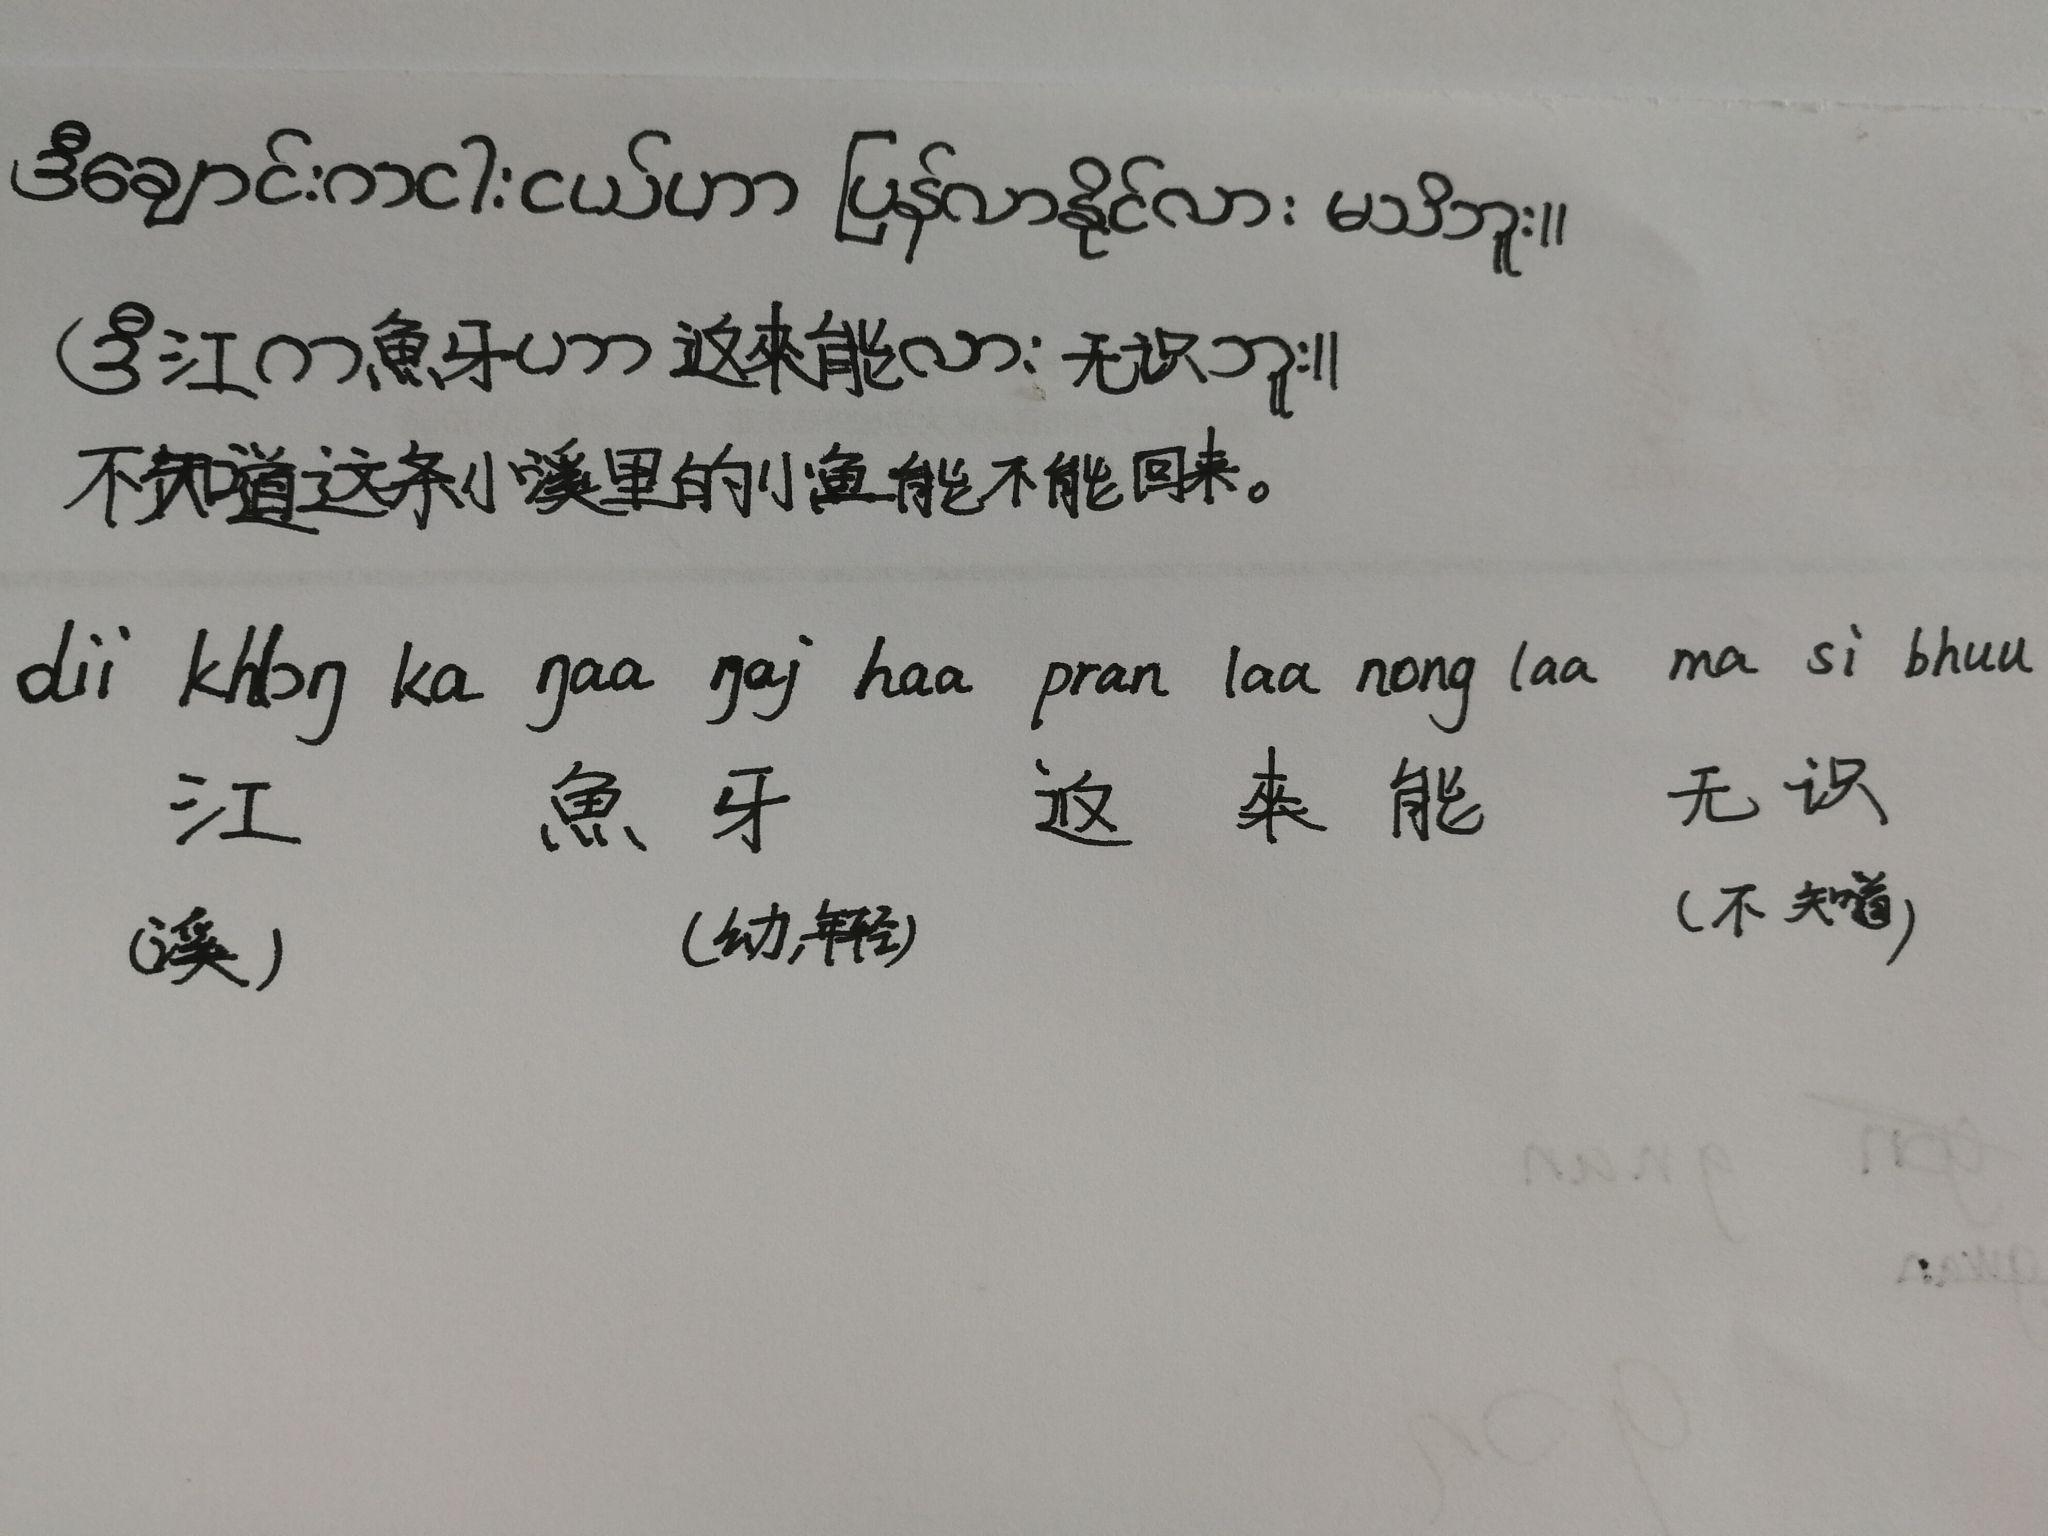 ဒီချောင်းကငါးငယ်ဟာ ပြန်လာနိုင်လား မသိဘူး။
(ဒီ江က魚牙ဟာ 返來能လား 无识ဘူး။
不知道这条小溪里的小鱼能不能回来。
dii khlɔŋ ka ŋaa ŋaj haa pran laa nong laa ma si bhuu
江 魚 牙 返 來 能 无 识
(溪) (幼,年轻) (不知道)